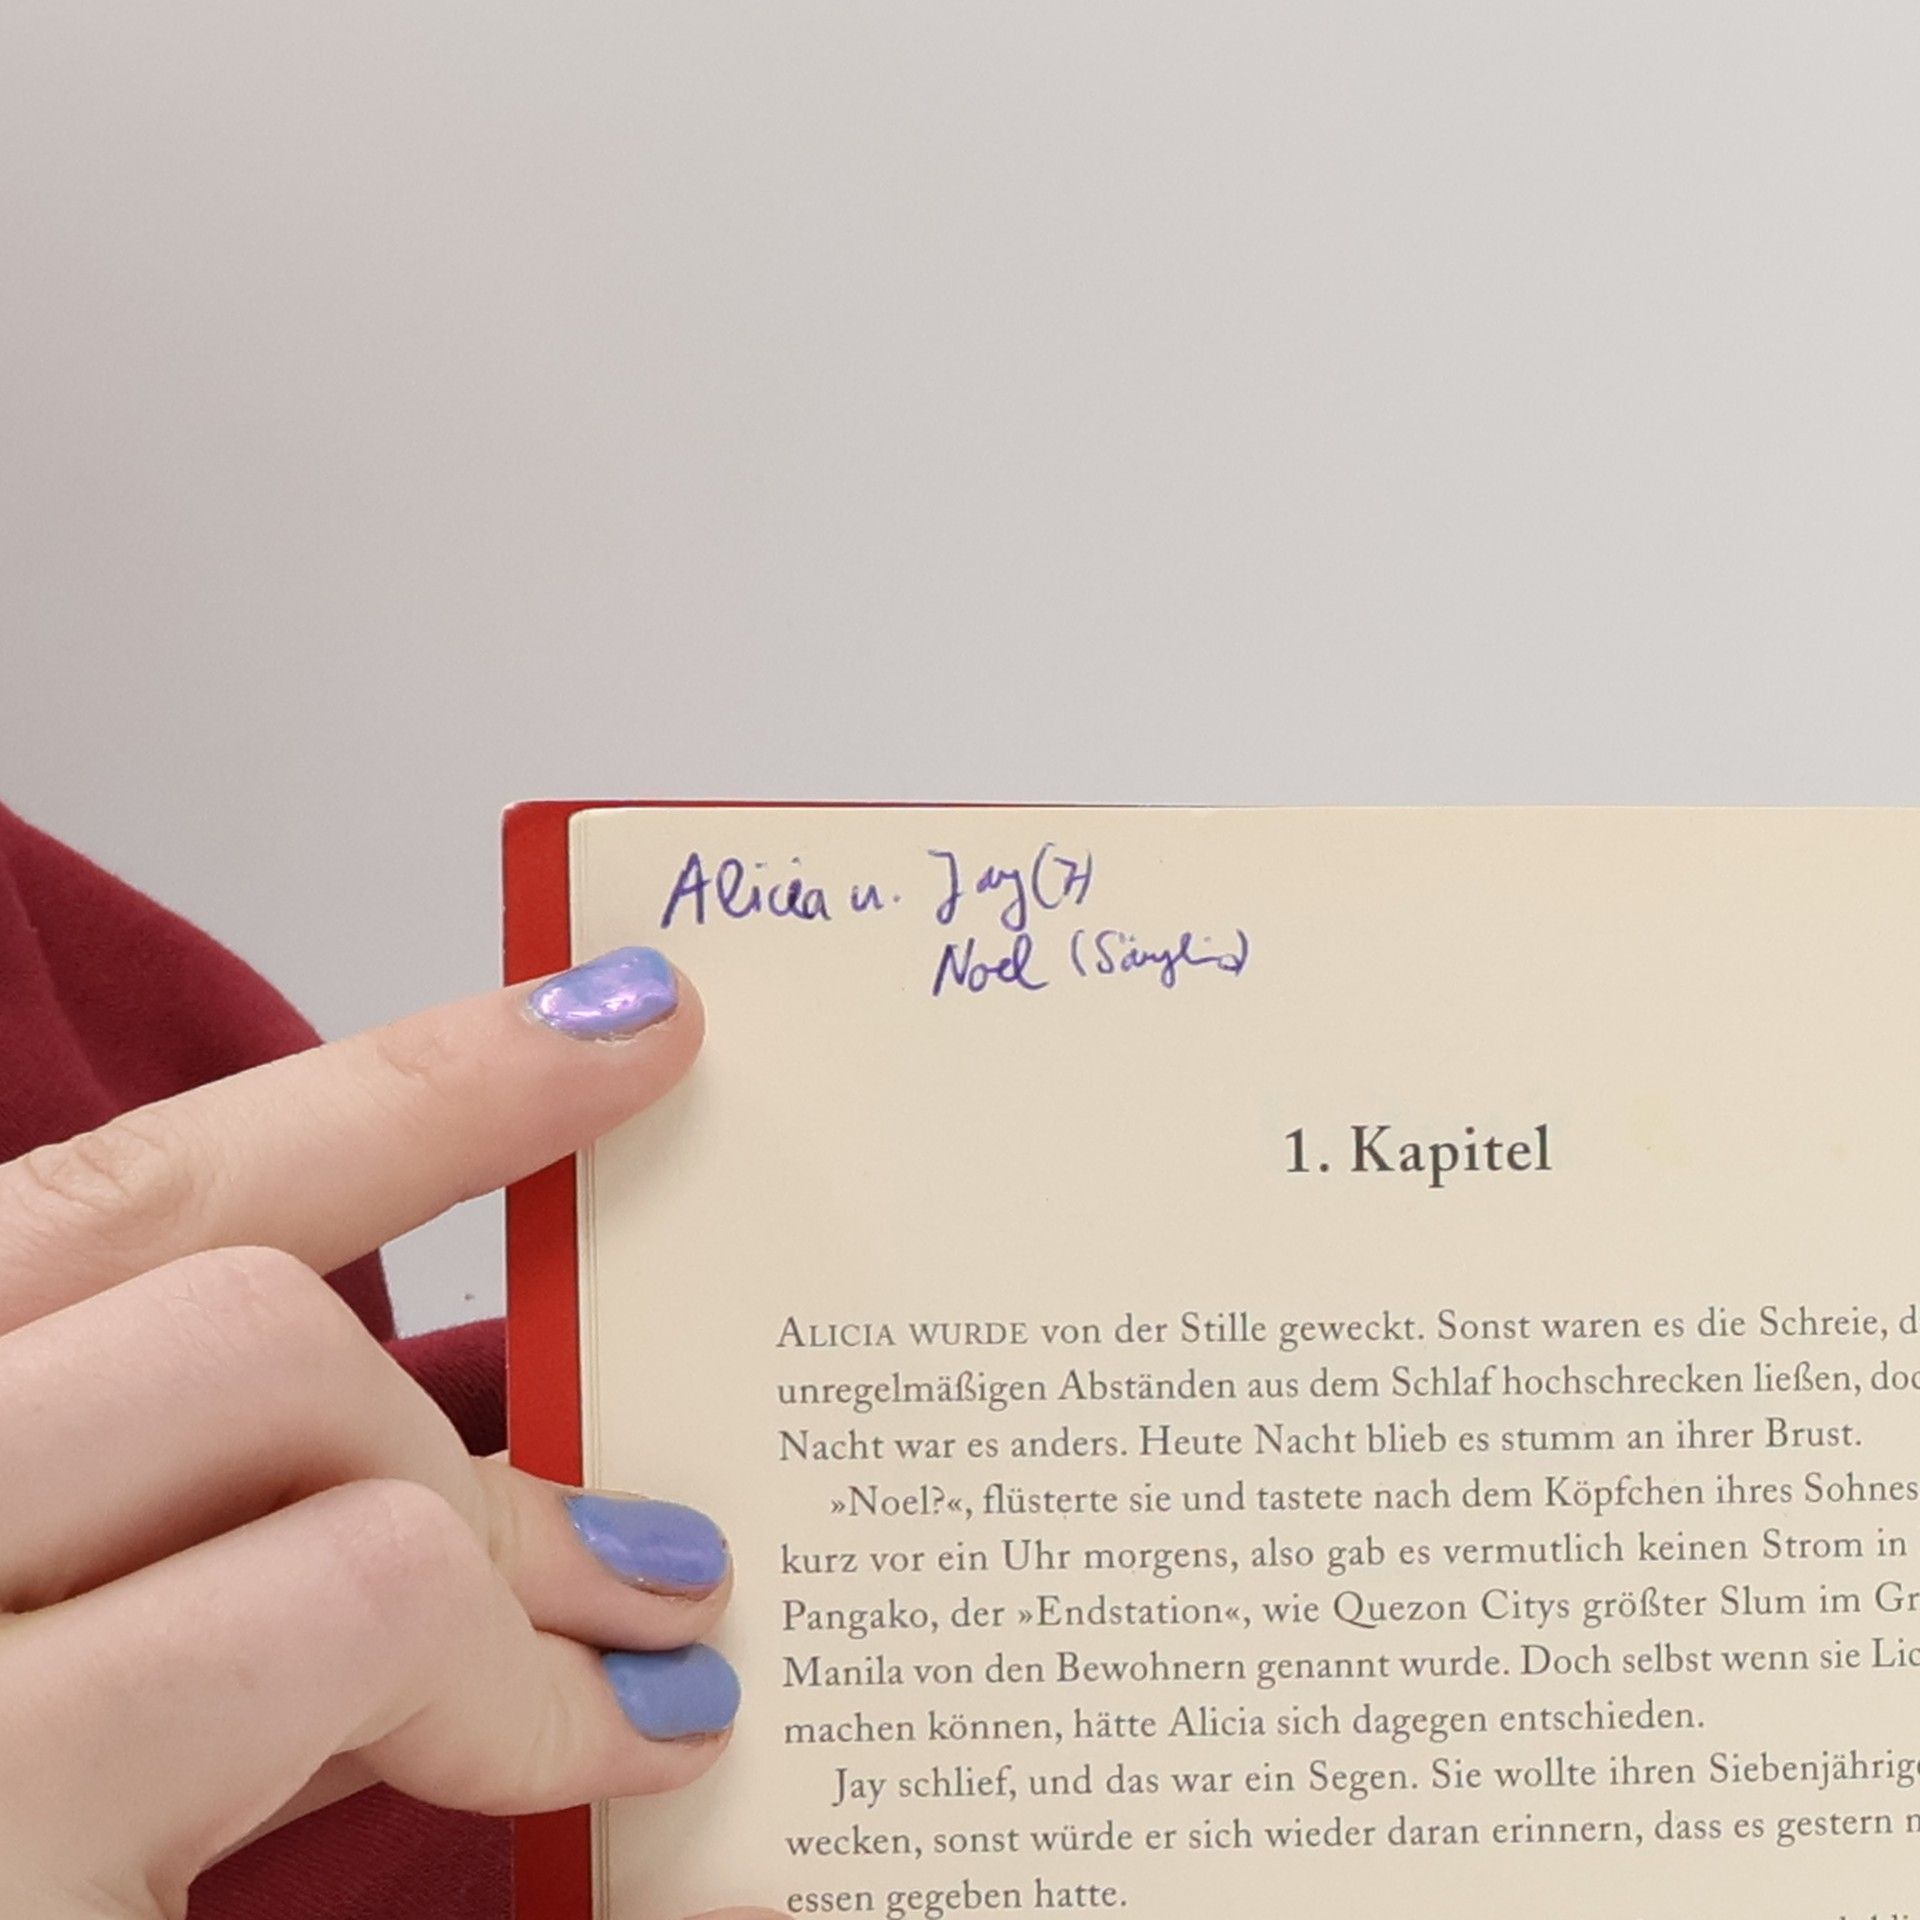 Alicia u. Jay (7)
Noel (Säugling)
1. Kapitel
ALICIA WURDE von der Stille geweckt. Sonst waren es die Schreie, d
unregelmäßigen Abständen aus dem Schlaf hochschrecken ließen, doc
Nacht war es anders. Heute Nacht blieb es stumm an ihrer Brust.
»Noel?«, flüsterte sie und tastete nach dem Köpfchen ihres Sohnes
kurz vor ein Uhr morgens, also gab es vermutlich keinen Strom in
Pangako, der »Endstation«, wie Quezon Citys größter Slum im Gr
Manila von den Bewohnern genannt wurde. Doch selbst wenn sie Lic
machen können, hätte Alicia sich dagegen entschieden.
Jay schlief, und das war ein Segen. Sie wollte ihren Siebenjährige
wecken, sonst würde er sich wieder daran erinnern, dass es gestern n
essen gegeben hatte.